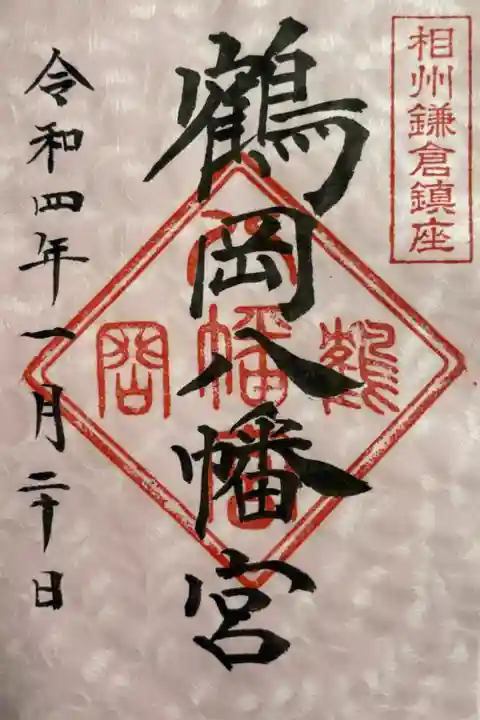 相州鎌倉鎮座
鶴岡八幡宮
令和四年一月二十日